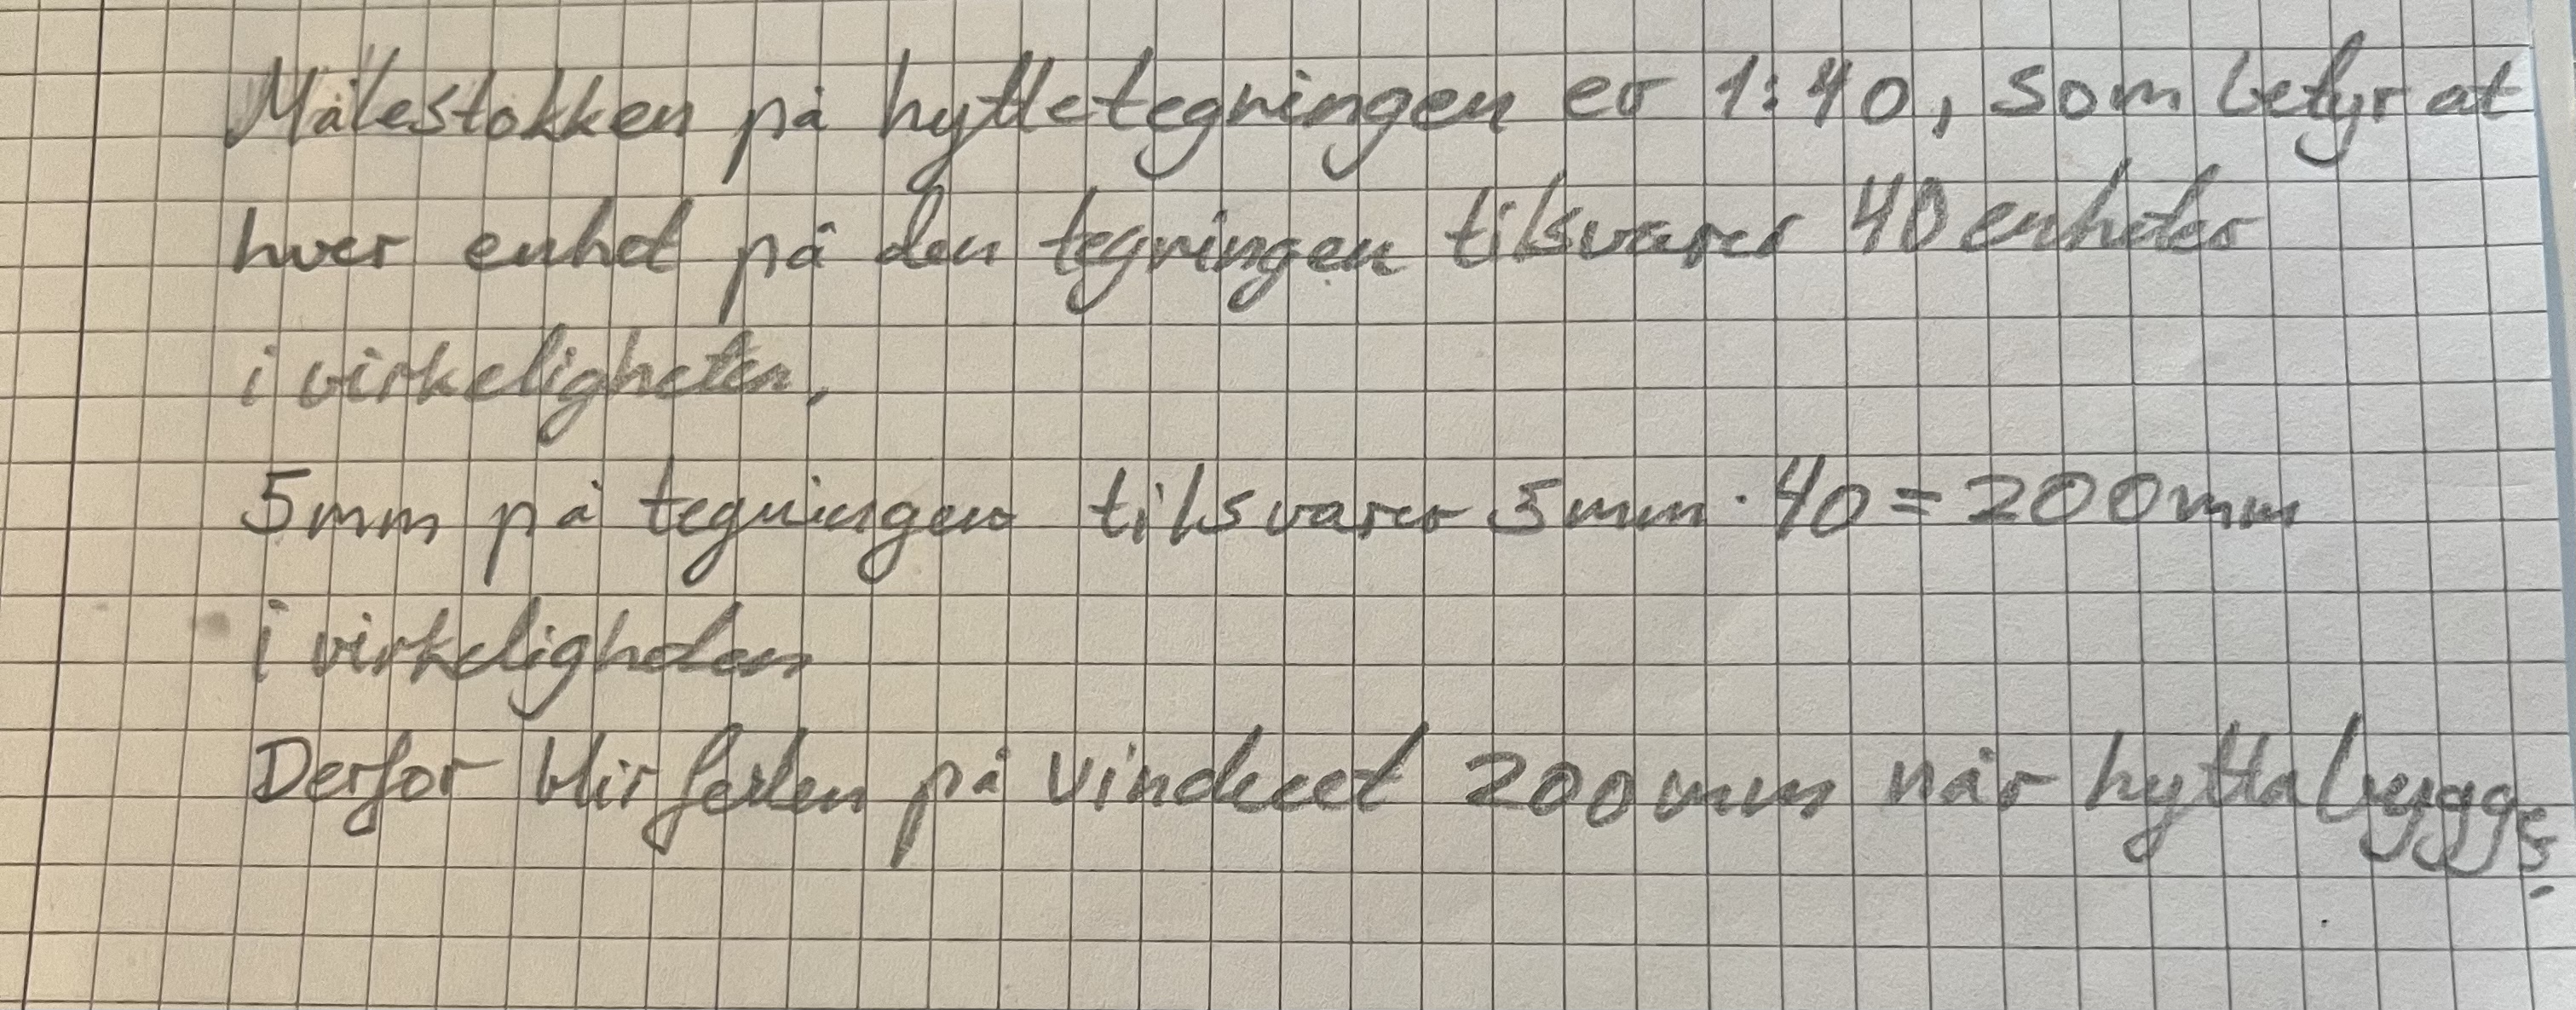 Målestokken på hyttetegningen er 1:40, som betyr at
hver enhet på den tegningen tilsvarer 40 enheter
i virkeligheten.
5mm på tegningen tilsvarer 5mm · 40 = 200mm
i virkeligheten
Derfor blir feilen på vinduet 200mm når hytta bygges.